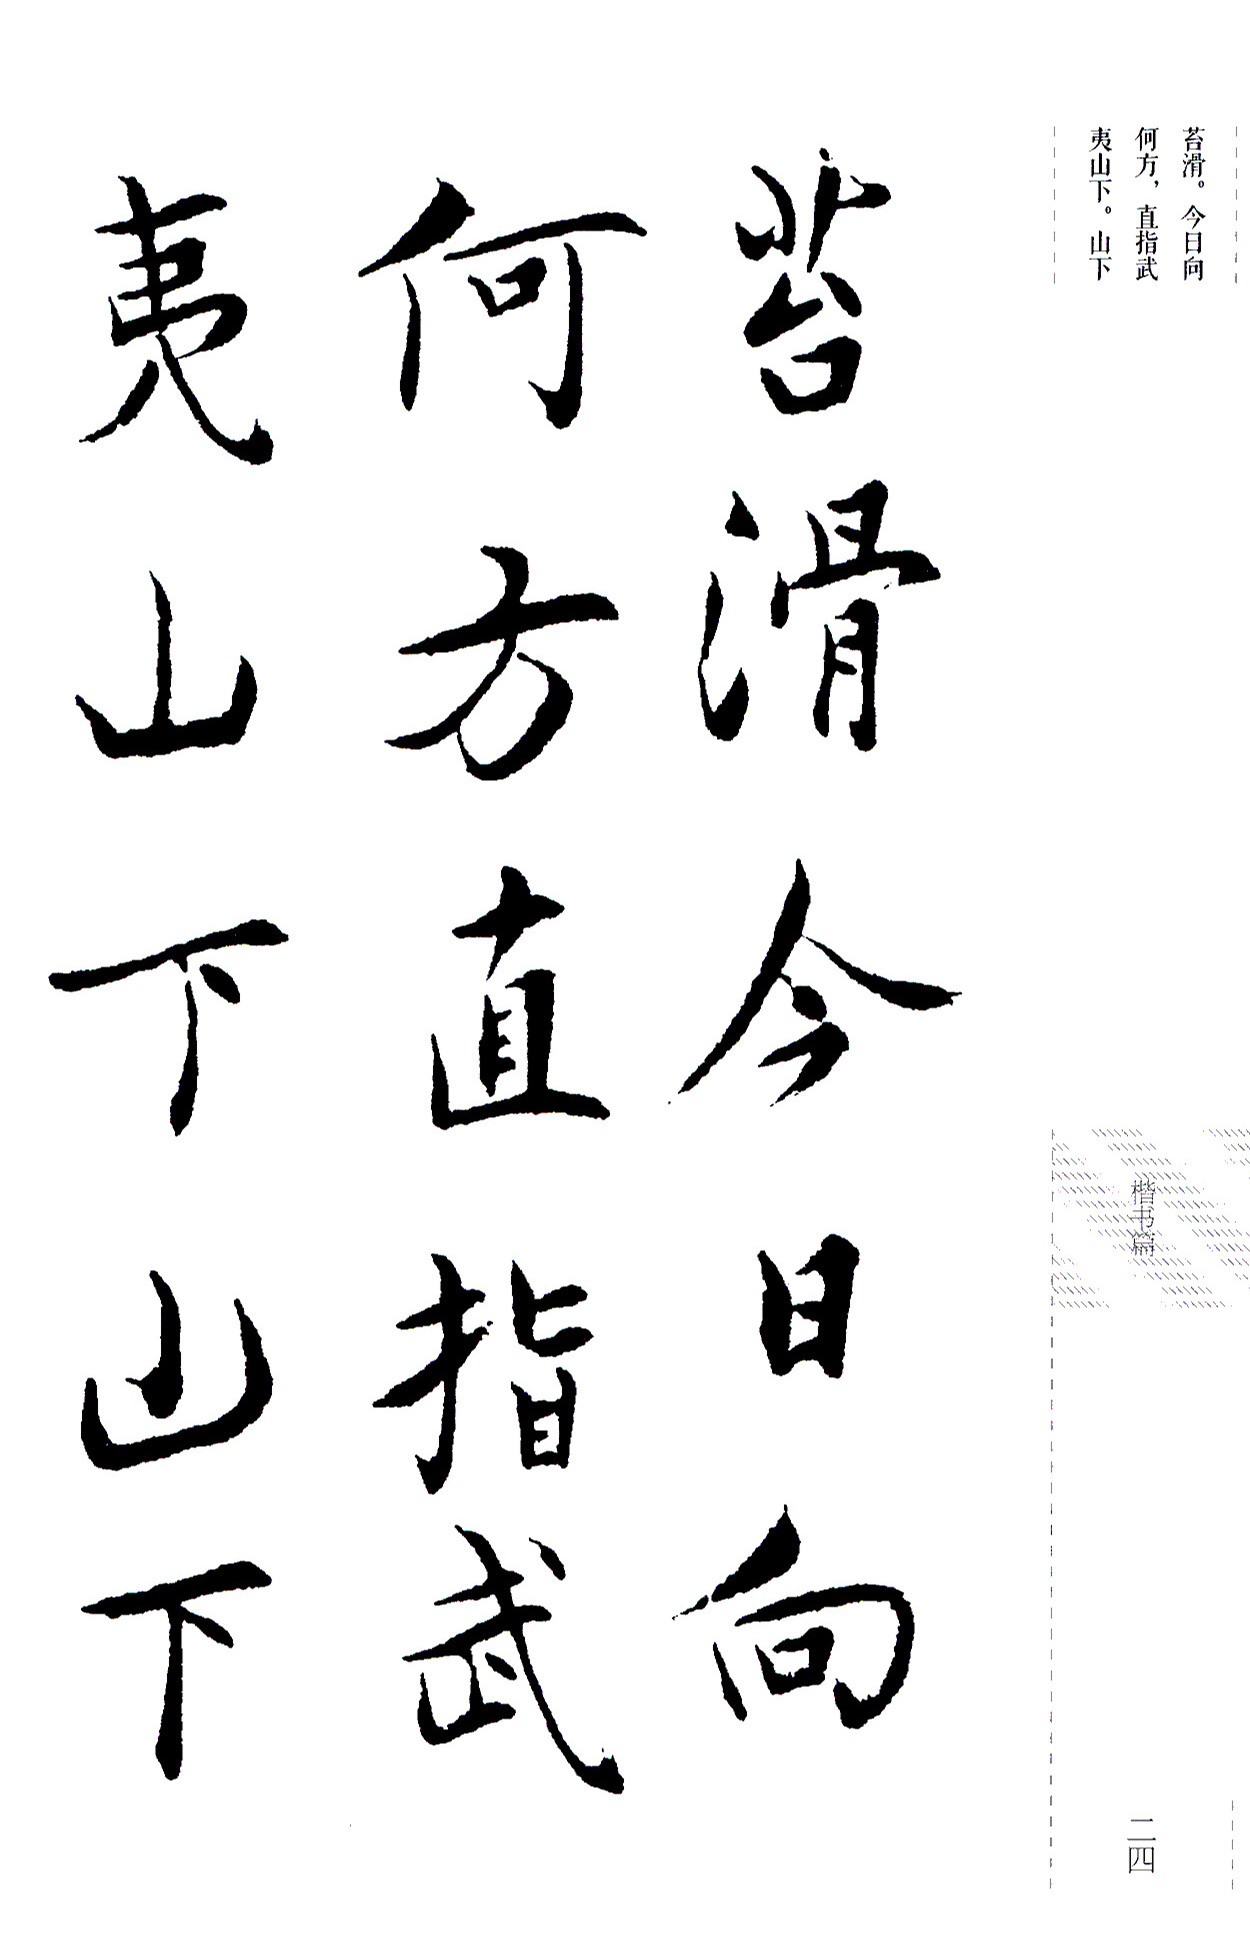 苔滑。今日向
何方，直指武
夷山下。山下
楷书篇
二四
苔滑今日向
何方直指武
夷山下山下